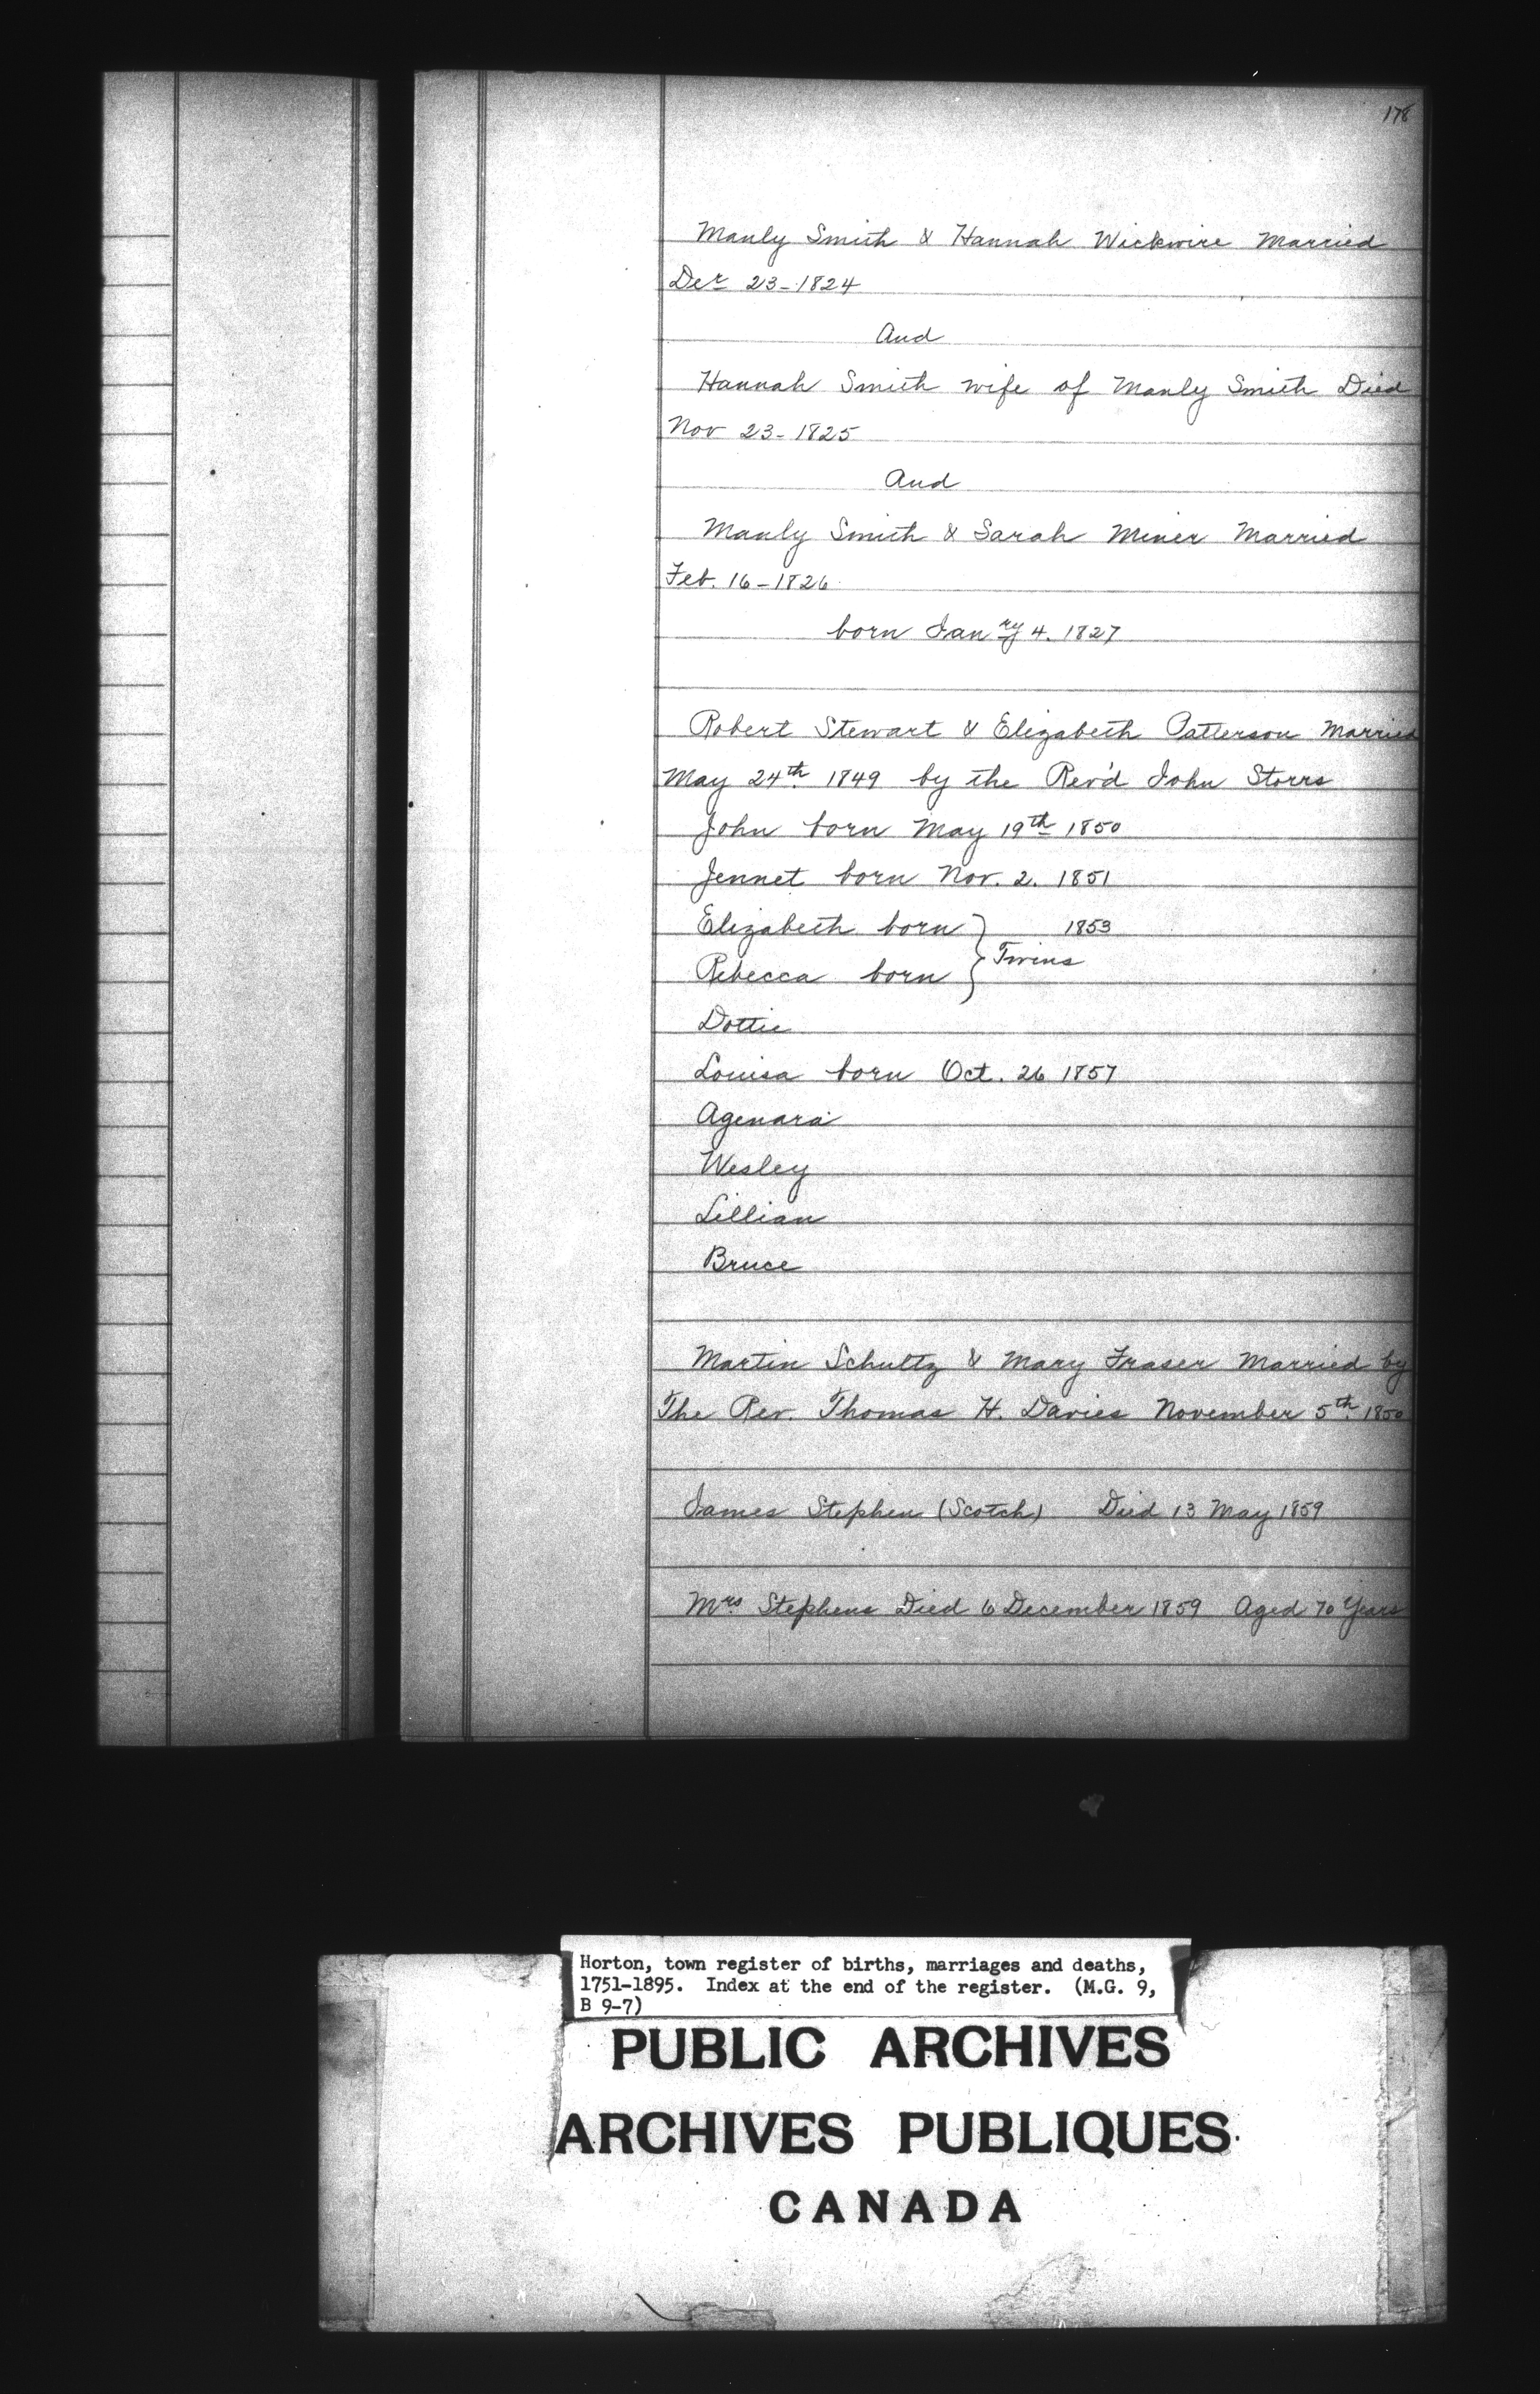 178
Manly Smith & Hannah Wickwire Married
Decr 23-1824
And
Hannah Smith wife of Manly Smith Died
Nov 23-1825
And
Manly Smith & Sarah Miner Married
Feb. 16-1826
born Janry 4. 1827
Robert Stewart & Elizabeth Patterson Married
May 24th 1849 by the Rev'd John Storrs
John born May 19th 1850
Jennet born Nov. 2. 1851
Elizabeth born } 1853
Twins
Rebecca born
Dottie
Louisa born Oct. 26 1857
Agenara
Wesley
Lillian
Bruce
Martin Schultz & Mary Fraser Married by
The Rev. Thomas H. Davies November 5th 1850
James Stephen (Scotch) Died 13 May 1859
Mrs Stephens Died 6 December 1859 Aged 70 Years
Horton, town register of births, marriages and deaths,
1751-1895. Index at the end of the register. (M.G. 9,
B 9-7)
PUBLIC ARCHIVES
ARCHIVES PUBLIQUES
CANADA